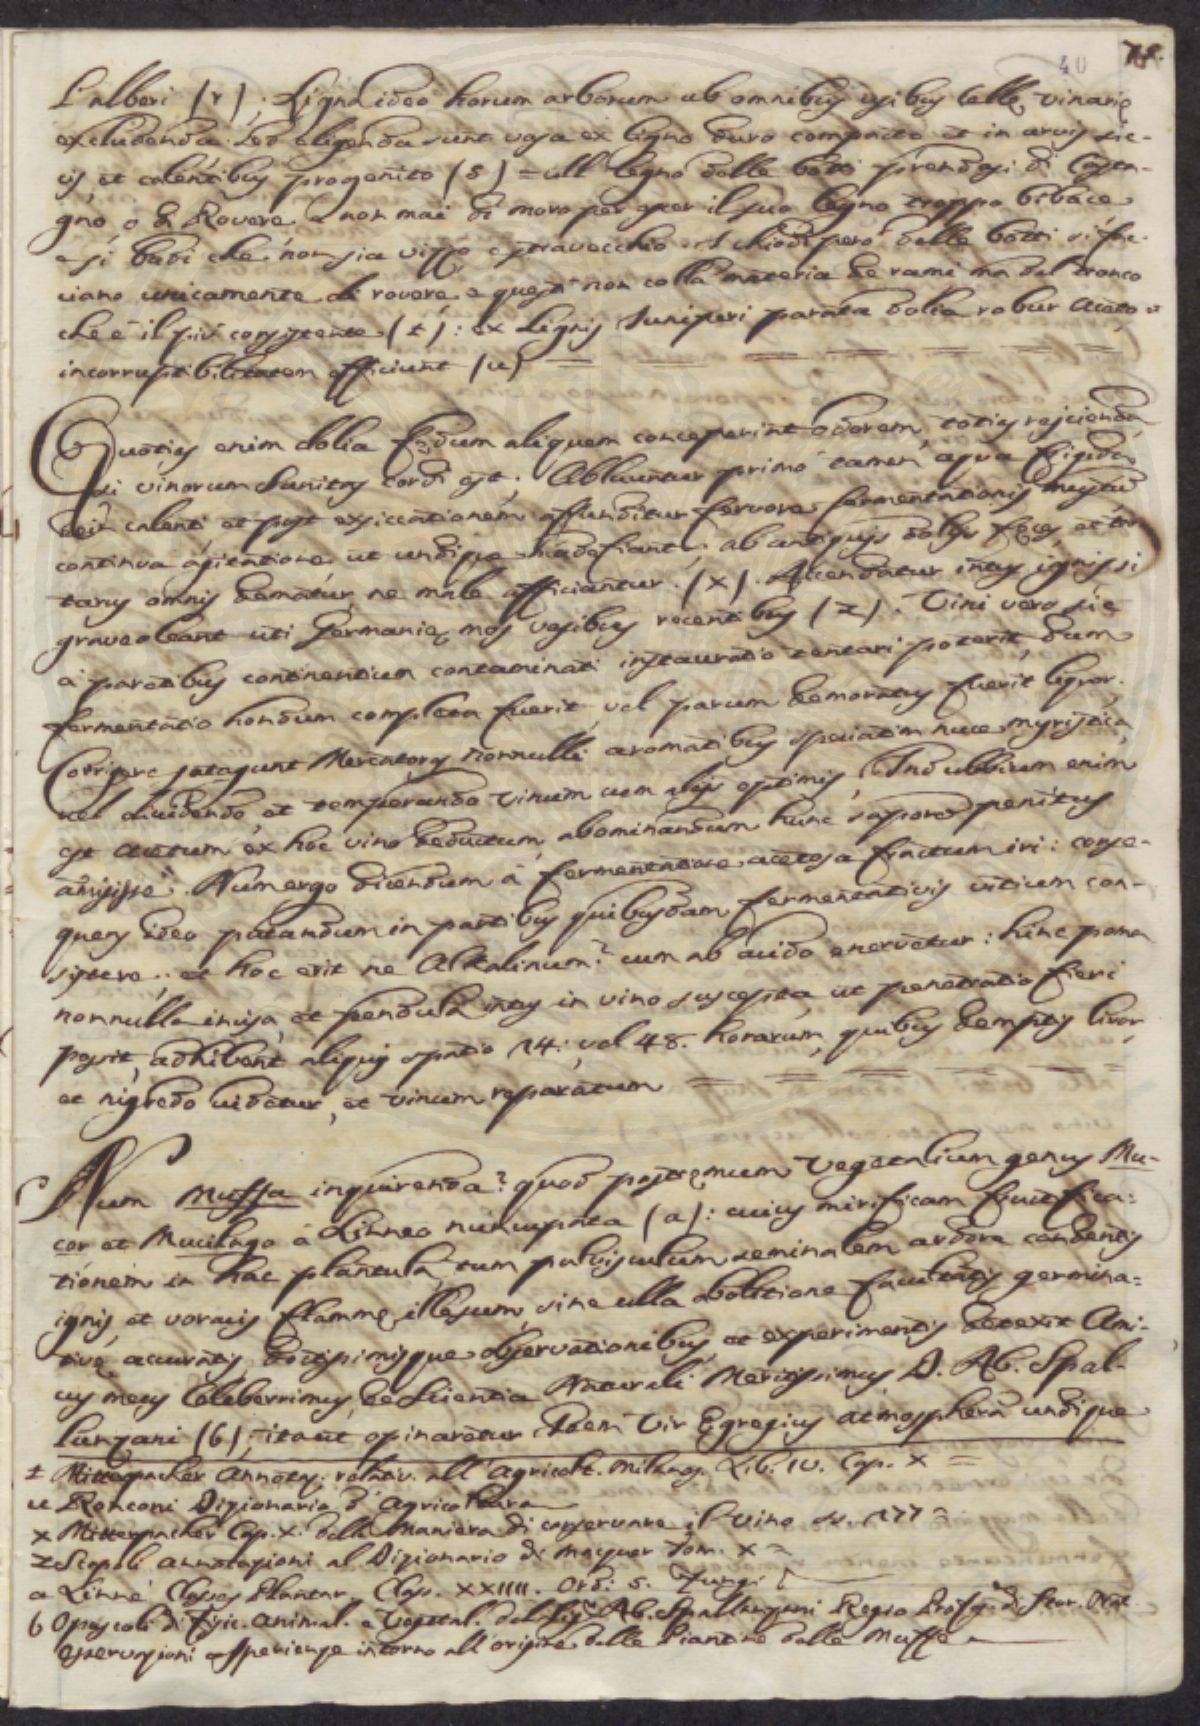 40
L'alberi (r); Ligna ideo horum arborum ab omnibus usibus Cellę vinarię
excludenda: sed eligenda sunt vasa ex ligno duro compacto et in arvis sic-
cis, et calentibus progenito (s) = il legno delle botti prendasi di Casta-
gno, o di Rovere, e non mai di moro per esser il suo legno troppo bibace
e si badi che non sia visso, e stravecchio. I chiodi però delle botti si fac-
ciano unicamente di rovere, e questi non colla materia de rami ma del tronco
che è il più consistente (t): ex Lignis Juniperi parata dolia robur aceto
incorruptibilitatem efficiunt (u)
Quoties enim dolia fędum aliquem conceperint odorem, toties rejcienda
si vinorum sanitas cordi est. Abluuntur primo tamen aqua frigida
dein calenti, et post exsiccationem affunditur fervore fermentationis mustum
continua agitatione ut undique madefiant; ab antiquis dolijs feces, et tar-
tarus omnis dematur, ne male afficiantur. (x). Accendatur intus ignis si
graveoleant uti Germanię mos vasibus recentibus (z). Vini vero sic
à parotibus continentium contaminati instauratio tentari poterit, dum
fermentatio nondum completa fuerit, vel parum demoratus fuerit liquor.
Corrigere satagunt Mercatores nonnulli aromatibus speciatim nuce myristica,
vel diuidendo, et temperando vinum cum alijs optimis. Indubbium enim
est acetum ex hoc vino deductum, abominandum hunc saporem penitus
amisisse. Num ergo dicendum à fermentatione acetosa fractum iri: conse-
quens ideo putandum in partibus quibusdam fermentativis vitium con-
sistere; et hoc erit ne Alkalinum? cum ab acido enervetur: hinc poma
nonnulla incisa, et pendula intus in vino suscepta, ut penetratio fieri
possit, adhibent aliquis spatio 24: vel 48. horarum, quibus demptis livor,
et nigredo videtur, et vinum reparatum
Num Muffa inquirenda? quod postremum Vegetalium genus Mu-
cor et Mucilago à Linneo nuncupata (a): cuius mirificam fructifica-
tionem in hac plantula, tum pulvisculum seminalem ardore candentis
ignis, et voracis flammę illesum, sine ulla abolitione facultatis germina-
tivę, accuratis, doctissimisque observationibus, et experimentis detexit Ami-
cus meus Celeberrimus, de Scientia Naturali Meritissimus D. Ab. Spal-
lanzani (b); ita ut opinaretur idem Vir Egregius atmosphera undique
t Mitterpacher Annotaz. relativ. all'Agricolt. Milanes. Lib. IV. Cap. X =
u Ronconi Dizionario d'Agricoltura
x Mitterpacher Cap. X. della Maniera di conservare il vino §. 177 =
z Scopoli annotazioni al Dizionario di Macquer Tom. X =
a Linné Classes Plantar. Class. XXIIII. Ord: 5. Fungi
b Opuscoli di Fisic. Animal. e Vegetal. del Sig.r Ab. Spallanzani Regio Profess.e di Stor. Nat.
Osservazioni e Sperienze intorno all'origine delle Piantine delle Muffe